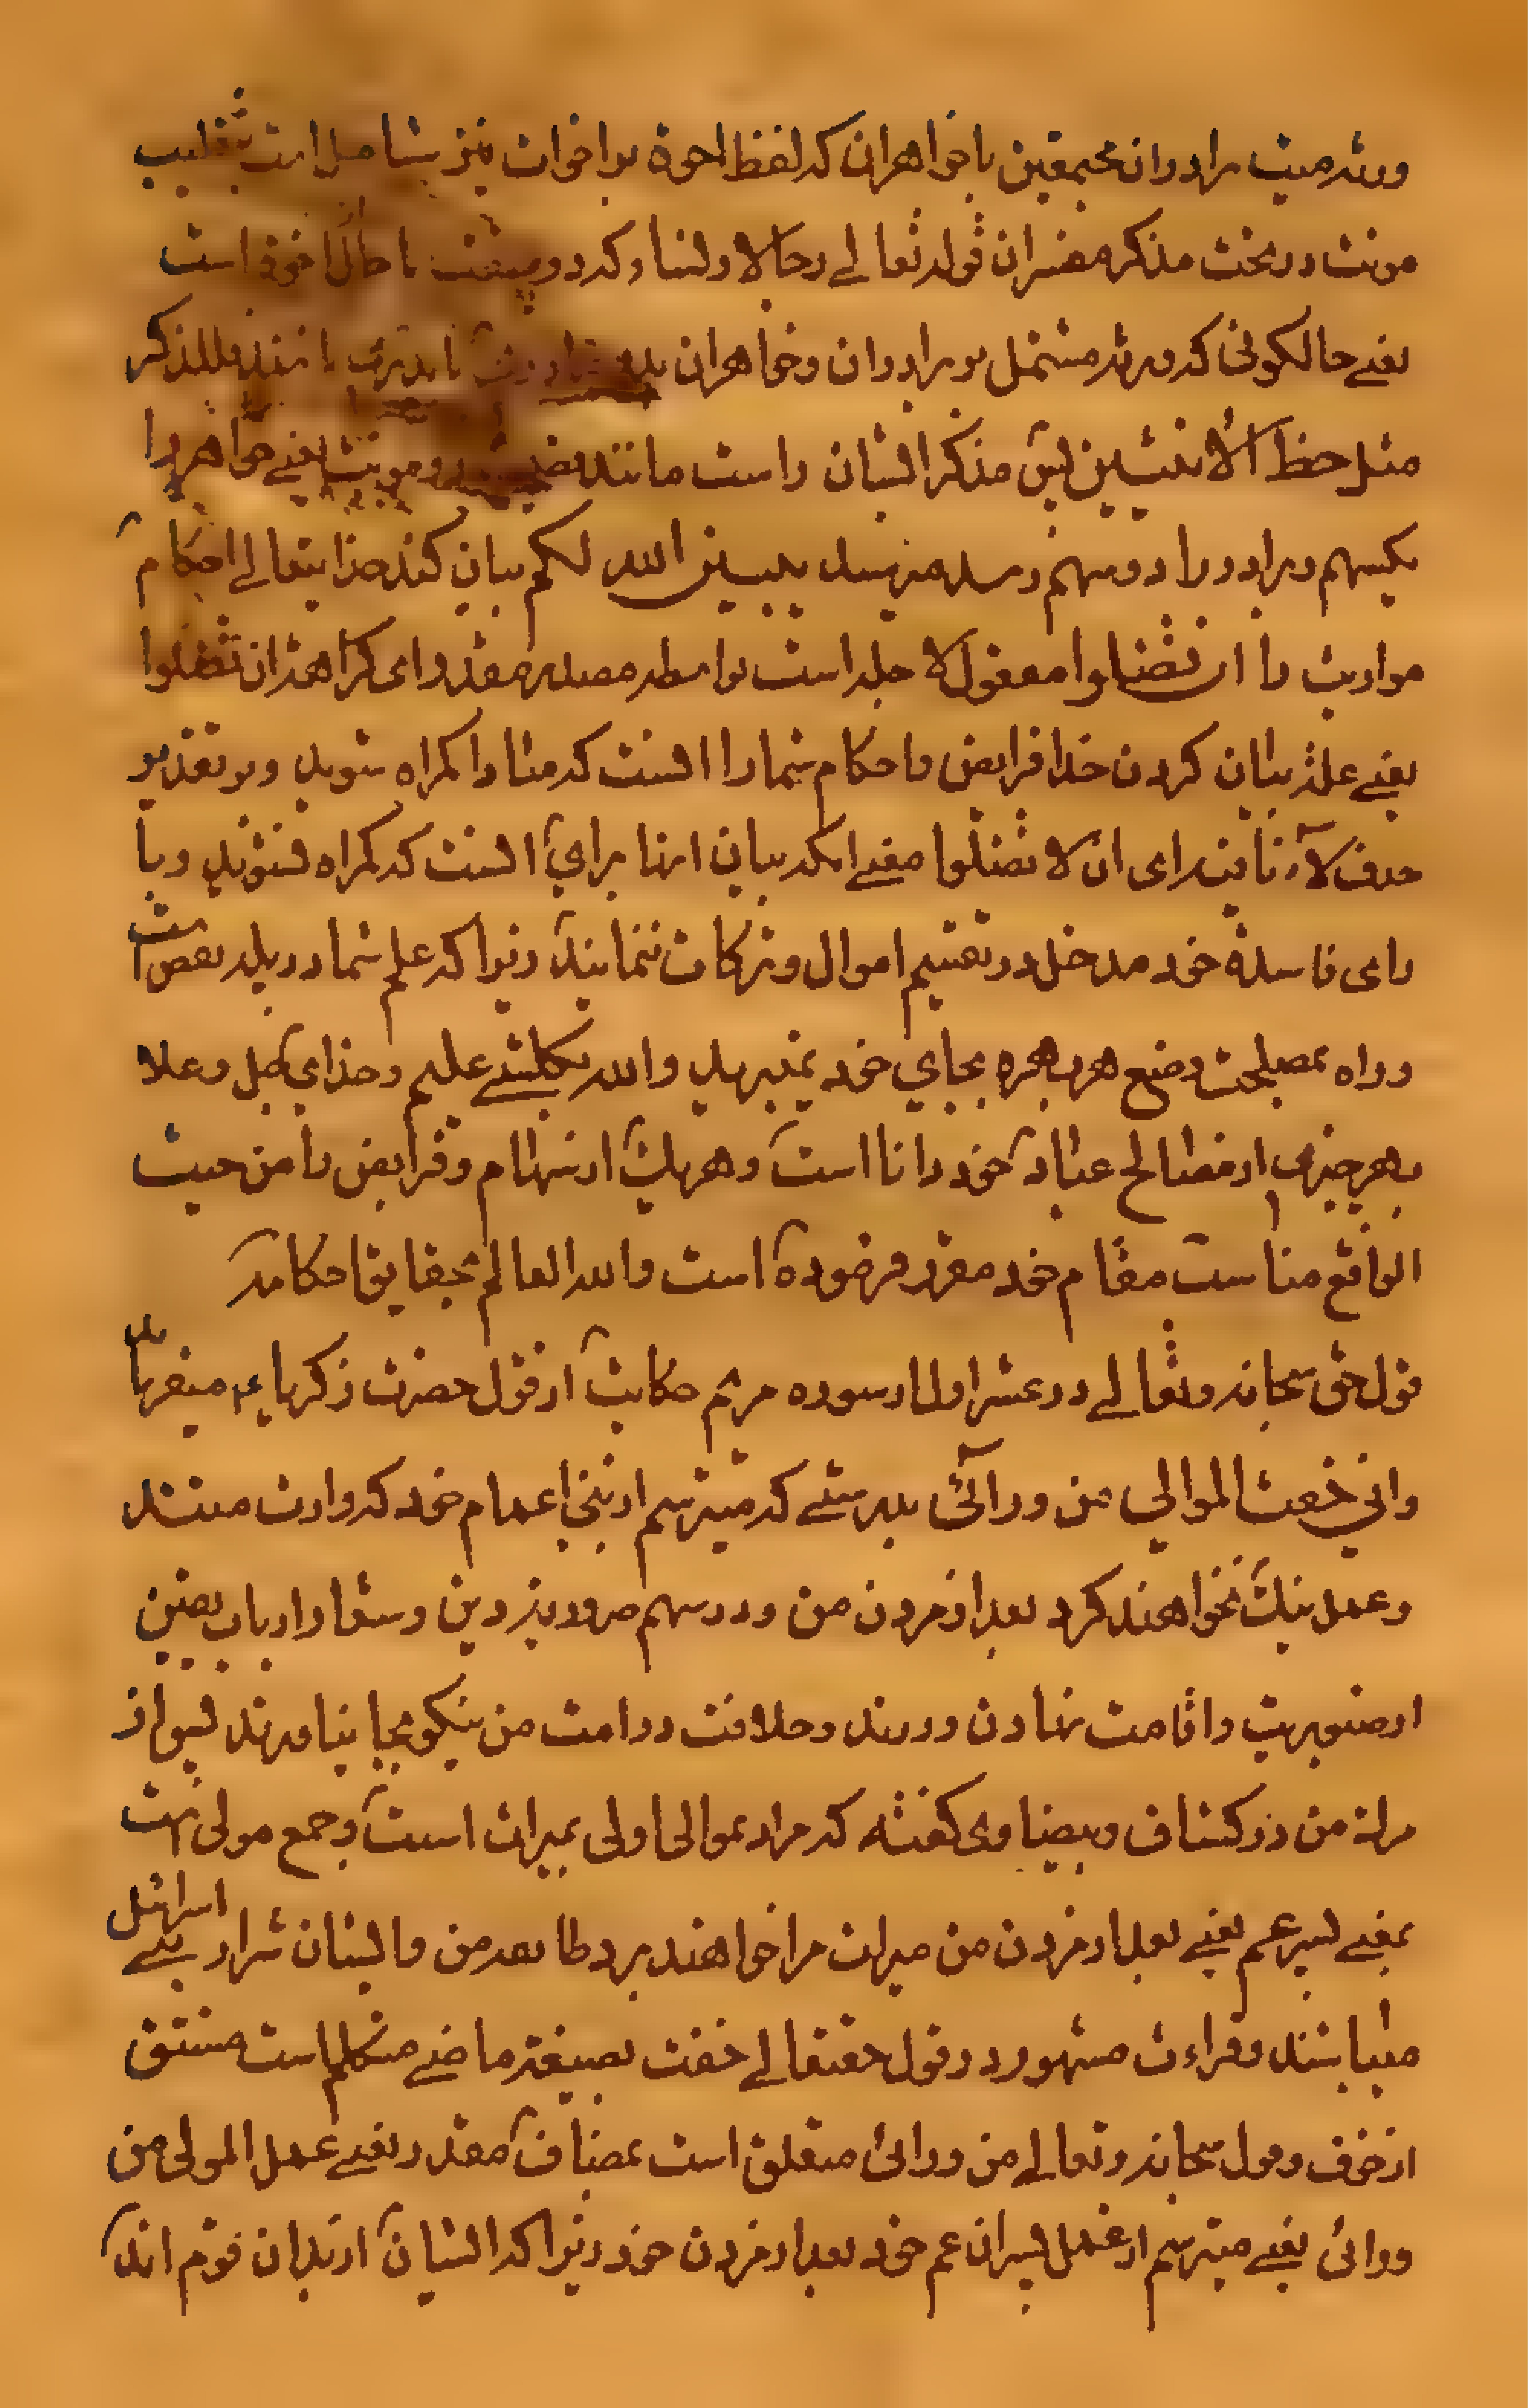 ورثه میت برادران مجتمعین با خواهران که لفظ اخوة بر اخوات نیز شامل است بتغلیب
مونث در تحت مذکر مفسران قوله تعالے رجالا ونساء که دو صفت یا حال اخوة است
یعنے حالکونی که ورثه مشتمل بر برادران و خواهران فللذکر
مثل حظ الانثیین پس مذکر ایشان راست مانند نصیب دو مونث یعنے خواهر را
یکسهم و برادر را دو سهم میرسد یبین الله لکم بیان کند خدایتعالے احکام
مواریث را ان تضلوا مفعول لاجله است بواسطه مصدر مقدر ای کراهة ان تضلوا
یعنے علة بیان کردن خدا فرایض و احکام شما را انست که مبادا کمراه شوید و بر تقدیر
حذف لاء نافیه ای ان لا تضلوا معنے انکه بیان اینها برای انست که کمراه نشوید و با
رای فاسدة خود مدخل در تقسیم اموال و ترکات ننمایید زیرا که علم شما در پله نقص است
و راه بمصلحت وضع هر بهره بجای خود نمیبرید والله بکلشئ علیم و خدای جل و علا
بهر چیزی از مصالح عباد خود دانا است و هریك از سهام و فرایض را من حیث
الواقع مناسب مقام خود مقرر فرموده است والله العالم بحقایق احکامه
قول حق سبحانه وتعالے در عشر اول از سوره مریم حکایت از قول حضرت زکریا ع میفرماید
وانی خفت الموالی من ورائی بدرستے که میترسم از بنی اعمام خود که وارث منند
و عمل نیك نخواهند کرد بعد از مردن من و در سهم ضروریه دین و شعار ارباب یقین
از صبوریت و اقامت ننمادن و ورزند و خلافت در امت من نیکو بجا نیاورند
من در کشاف و بیضاوی کفته که مراد بموالی اولی بمیراث است و جمع مولی است
بمعنے پسر عم یعنے بعد از مردن من میراث مرا خواهند برد بعد من و ایشان شرار بنے اسرائیل
میباشند و قراءت مشهور در قول حقتعالے خفت بصیغه ماضے متکلم است مشتق
از خوف و قول سبحانه وتعالے من ورائی متعلق است بمضاف مقدر یعنے عمل الموالی من
ورائی یعنے میترسم از عمل پسران عم خود بعد از مردن خود زیرا که ایشان از بدان قوم اند